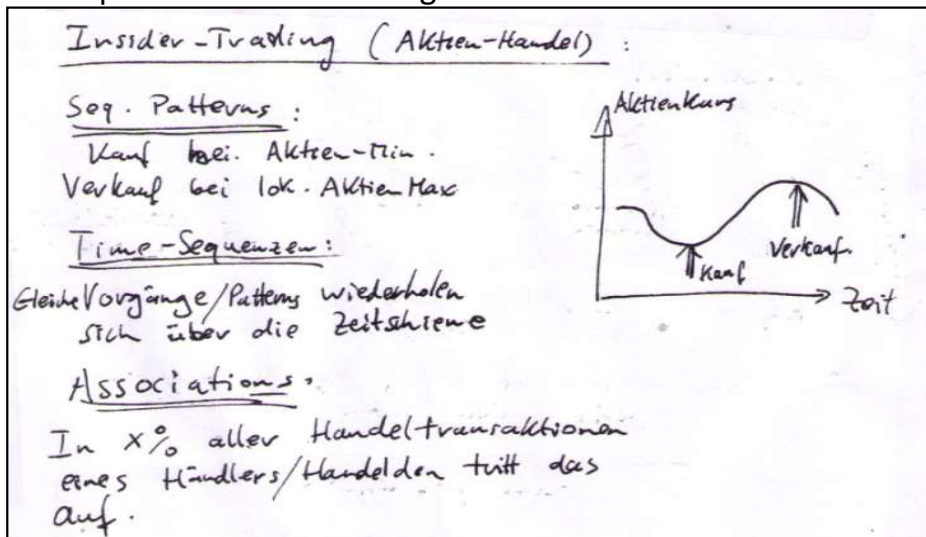 Insider-Trading (Aktien-Handel) :
Seq. Patterns :
Kauf bei. Aktien-Min.
Verkauf bei lok. Aktien Max
Time-Sequenzen:
Gleiche Vorgänge/Patterns wiederholen
sich über die Zeitschiene
Associations.
In X% aller Handeltransaktionen
eines Händlers/Handelden tritt das
auf.
Aktienkurs
Kauf
Verkauf.
Zeit